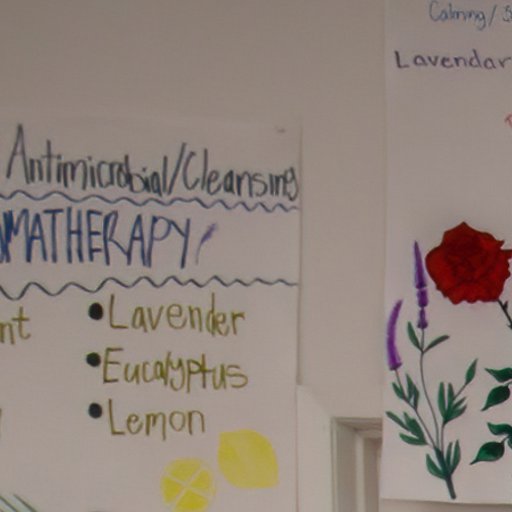 Antimicrobial/Cleansing
OMATHERAPY/
nt
•Lavender
•Eucalyptus
•Lemon
Calming/
Lavendar